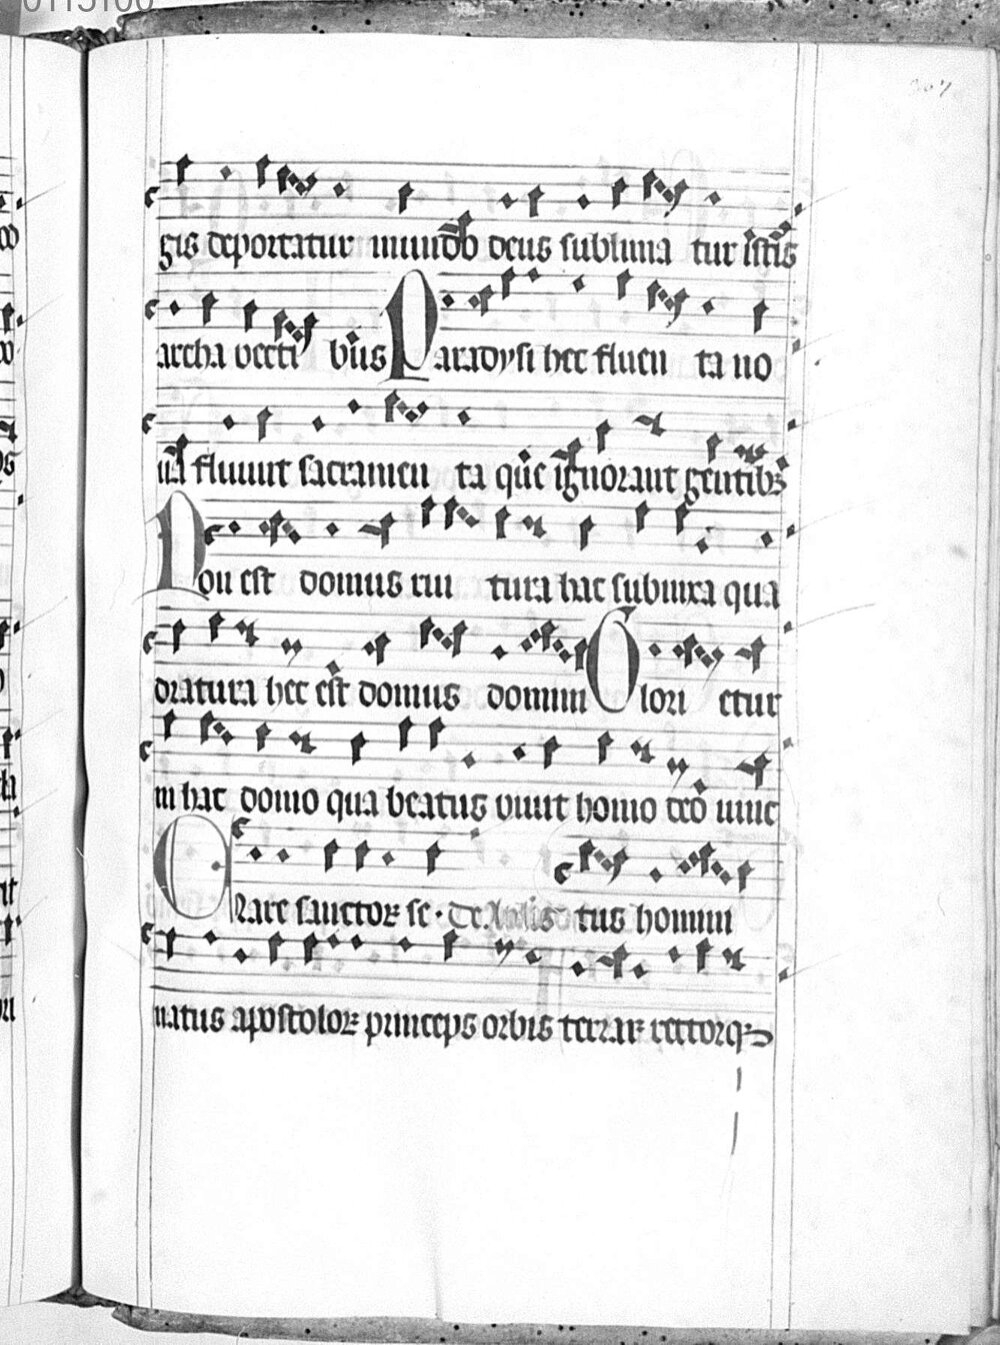 0115100
gis deportatur mundo deus sublima tur istis
archa vecti bus Paradysi hec fluen ta no
ua fluunt sacramen ta que ignorant gentibꝫ
Non est domus rui tura hac subnixa qua
dratura hec est domus domini Glori etur
in hac domo qua beatus viuit homo deo uiuit
Clare sanctoꝝ se tus homini
natus apostoloꝝ princeps orbis terraꝝ rectorqꝫ